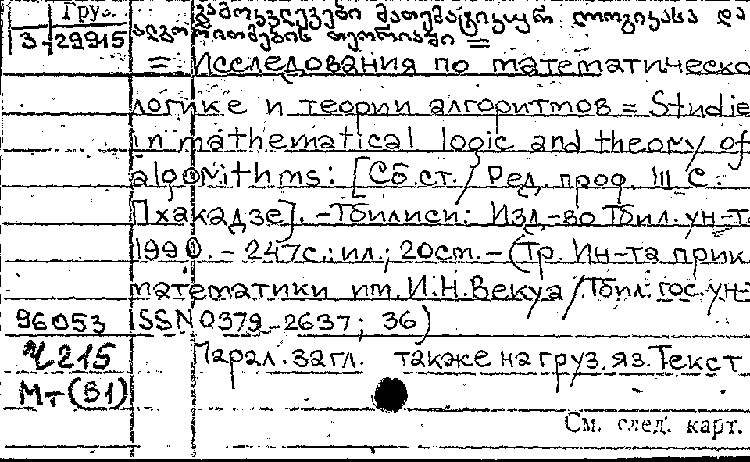 Груз.
გამოკვლევები მათემატიკურ ლოგიკასა და
3-29915 ალგორითმების თეორიაში =
= Исследования по математическо
логике и теории алгоритмов = Studie
in mathematical logic and theory of
algorithms: [Сб.ст./ Ред. проф. Ш.С.
Пхакадзе]. - Тбилиси: Изд-во Тбил. ун-т
1990. - 247с.: ил.; 20cm. - (Тр. Ин-та прик
математики им. И.Н.Векуа / Тбил. гос. ун-
96053 ISSN 0379-2637; 36)
Ч215 Парал. загл. также на груз. яз. Текст
Мт(В1)
См. след. карт.